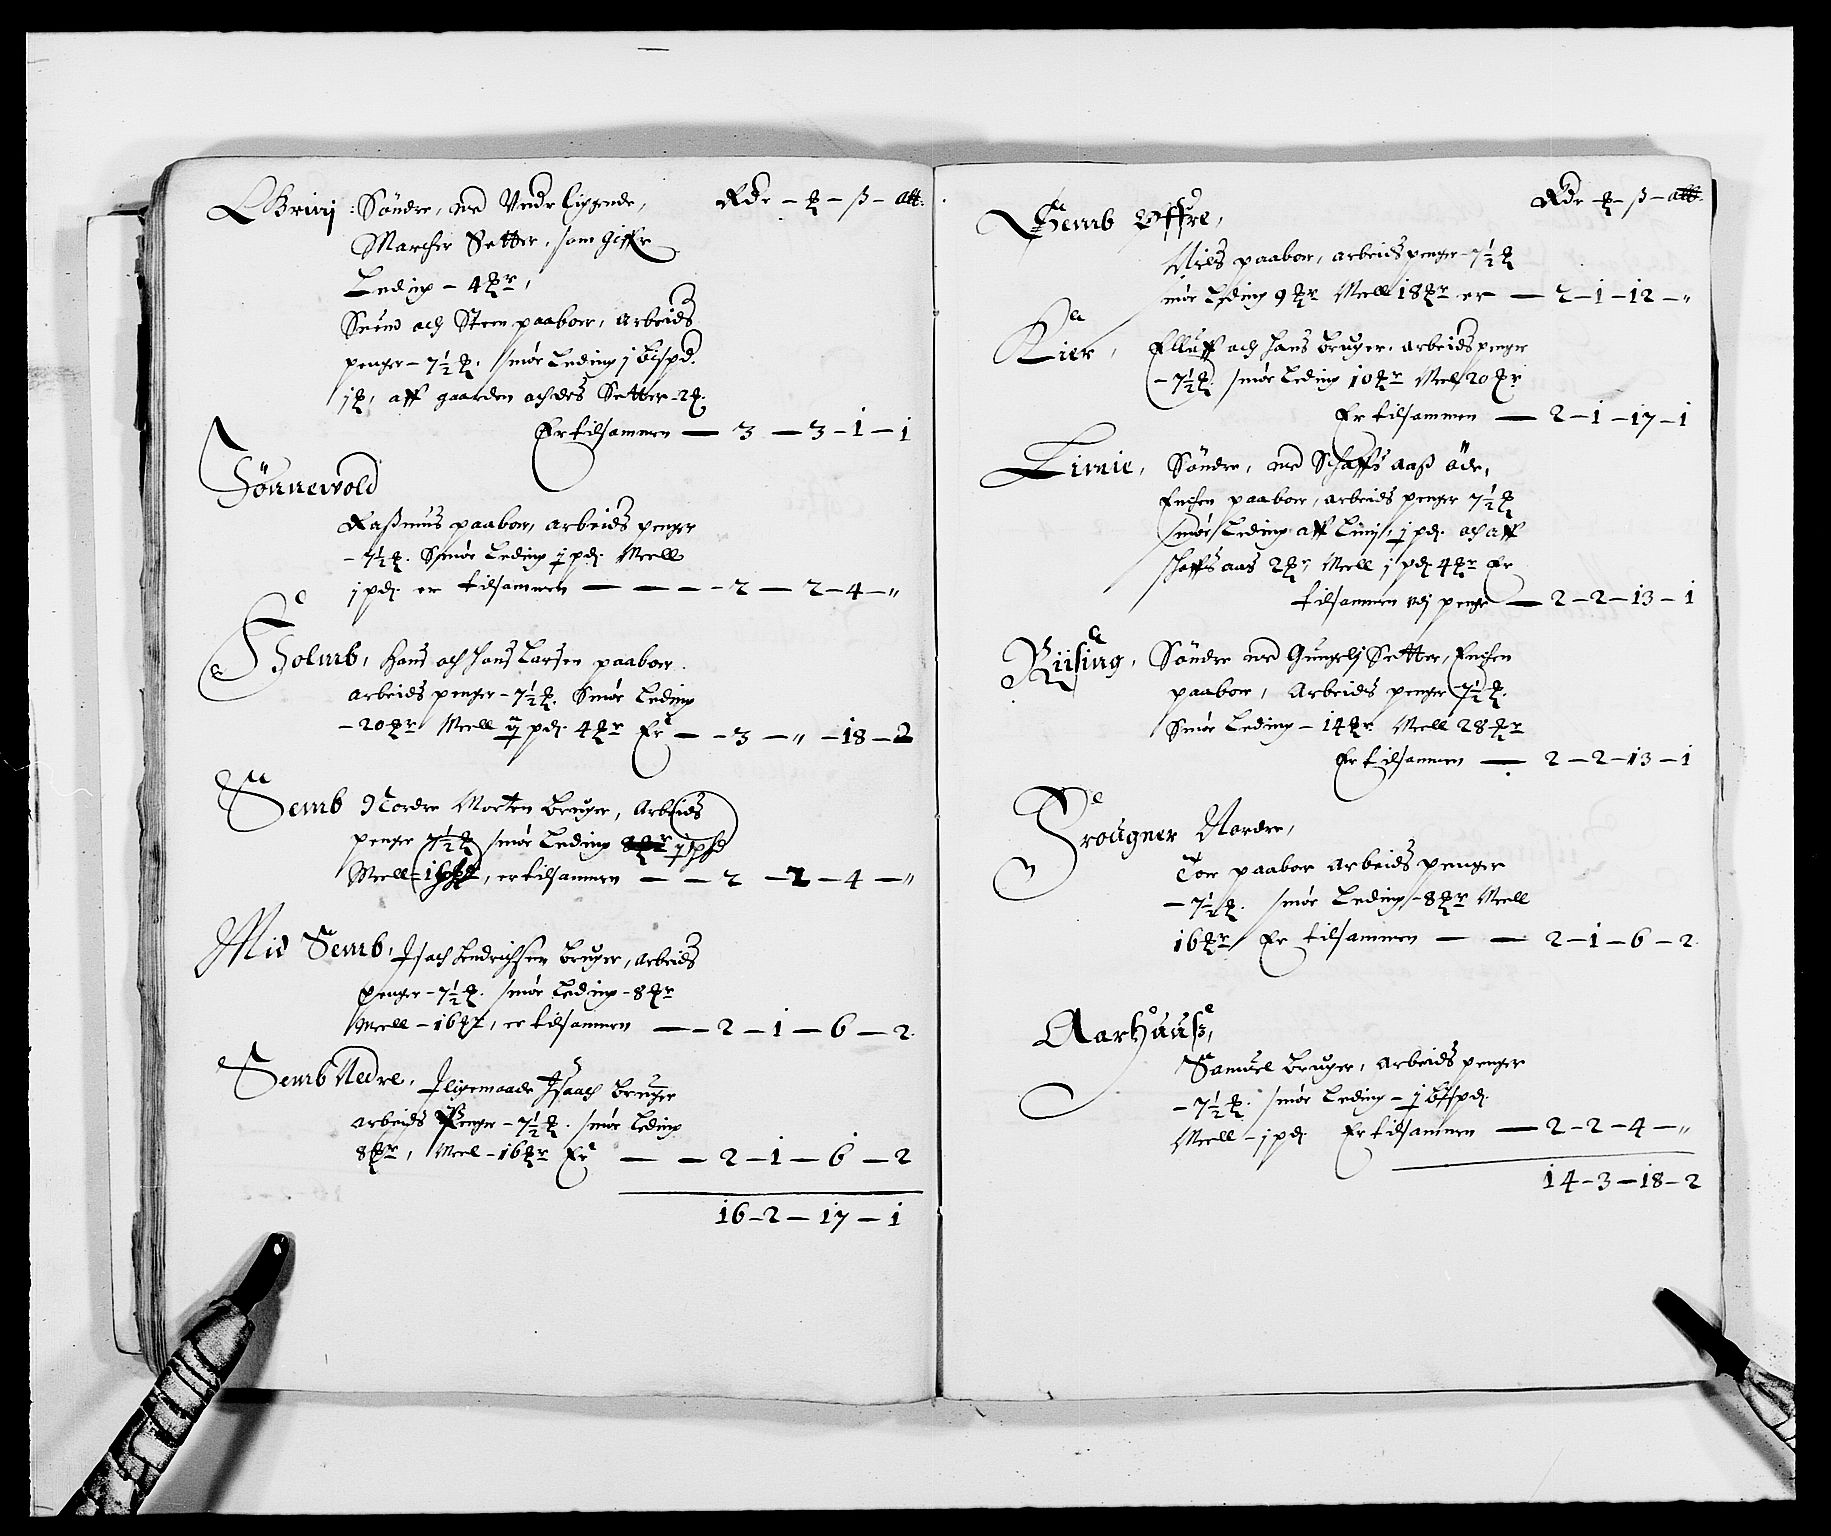 Briuj Söndre, med Underliggende, Rdr - ℔ - ß - alb.
Marcher Setter, som giffr
Leding - 4 ℔r,
Suend och Steen paaboer, Arbeids
penger - 7½ ℔. smör Leding j bispd.
j ℔, aff gaarden och des Setter - 2 ℔.
Er tilsammen — 3 — 3 - 1 - 1
Sönnewold
Raßmus paaboer, Arbeids penger
- 7½ ℔. Smör Leding j pd. Meell
j pd. er tilsammen — — — 2 — 2 - 4 - "
Holmb, Hans och Hans Larsen paaboer.
arbeids penger - 7½ ℔. Smör Leding
- 20 ℔r Meell ij pd. 4 ℔r Er — 3 — " - 18 - 2
Semb Nordre Morten Bruger, Arbeids
penger 7½ ℔ smör Leding j pd
Meell , er tilsammen — — 2 - 2 - 4 - "
Mid Semb, Isach Hendrichsen Bruger, Arbeids
penger - 7½ ℔. smör Leding - 8 ℔r
Meell - 16 ℔r, er tilsammen — 2 - 1 - 6 - 2
Semb Nedre, Iligemaade Isaach Bruger
arbeids Penger - 7½ ℔. smör Leding
8 ℔r, Meel - 16 ℔r Er — — 2 - 1 - 6 - 2
16 - 2 - 17 - 1
Rdr - ℔ - ß - alb.
Semb Öffre,
Niels paaboer, arbeids penger - 7½ ℔
smör Leding 9 ℔r Meell 18 ℔r er — 2 - 1 - 12 - "
Kier, Elluff och Hans Bruger, arbeids penger
- 7½ ℔. smör Leding 10 ℔r Meel 20 ℔r
Er tilsammen — 2 - 1 - 17 - 1
Limie, Söndre, med Schaffs aaß öde,
Enchen paaboer, arbeids penger 7½ ℔
smör Leding aff Limj, j pd. och aff
schaffs aas 2 ℔r, Meell j pd. 4 ℔r Er
tilsammen udj penge — 2 - 2 - 13 - 1
Riising, Söndre med Gungelj Setter, Enchen
paaboer, Arbeids penger 7½ ℔.
Smör Leding - 14 ℔r Meell 28 ℔r
Er tilsammen — 2 - 2 - 13 - 1
Trougner Nordre,
Tor paaboer Arbeids penger
- 7½ ℔. smör Leding - 8 ℔r Meell
16 ℔r Er tilsammen — — 2 - 1 - 6 - 2
Aarhuus,
Samuel Bruger, Arbeids penger
- 7½ ℔. smör Leding - j bispd.
Meell - j pd. Er tilsammen — 2 - 2 - 4 - "
14 - 3 - 18 - 2